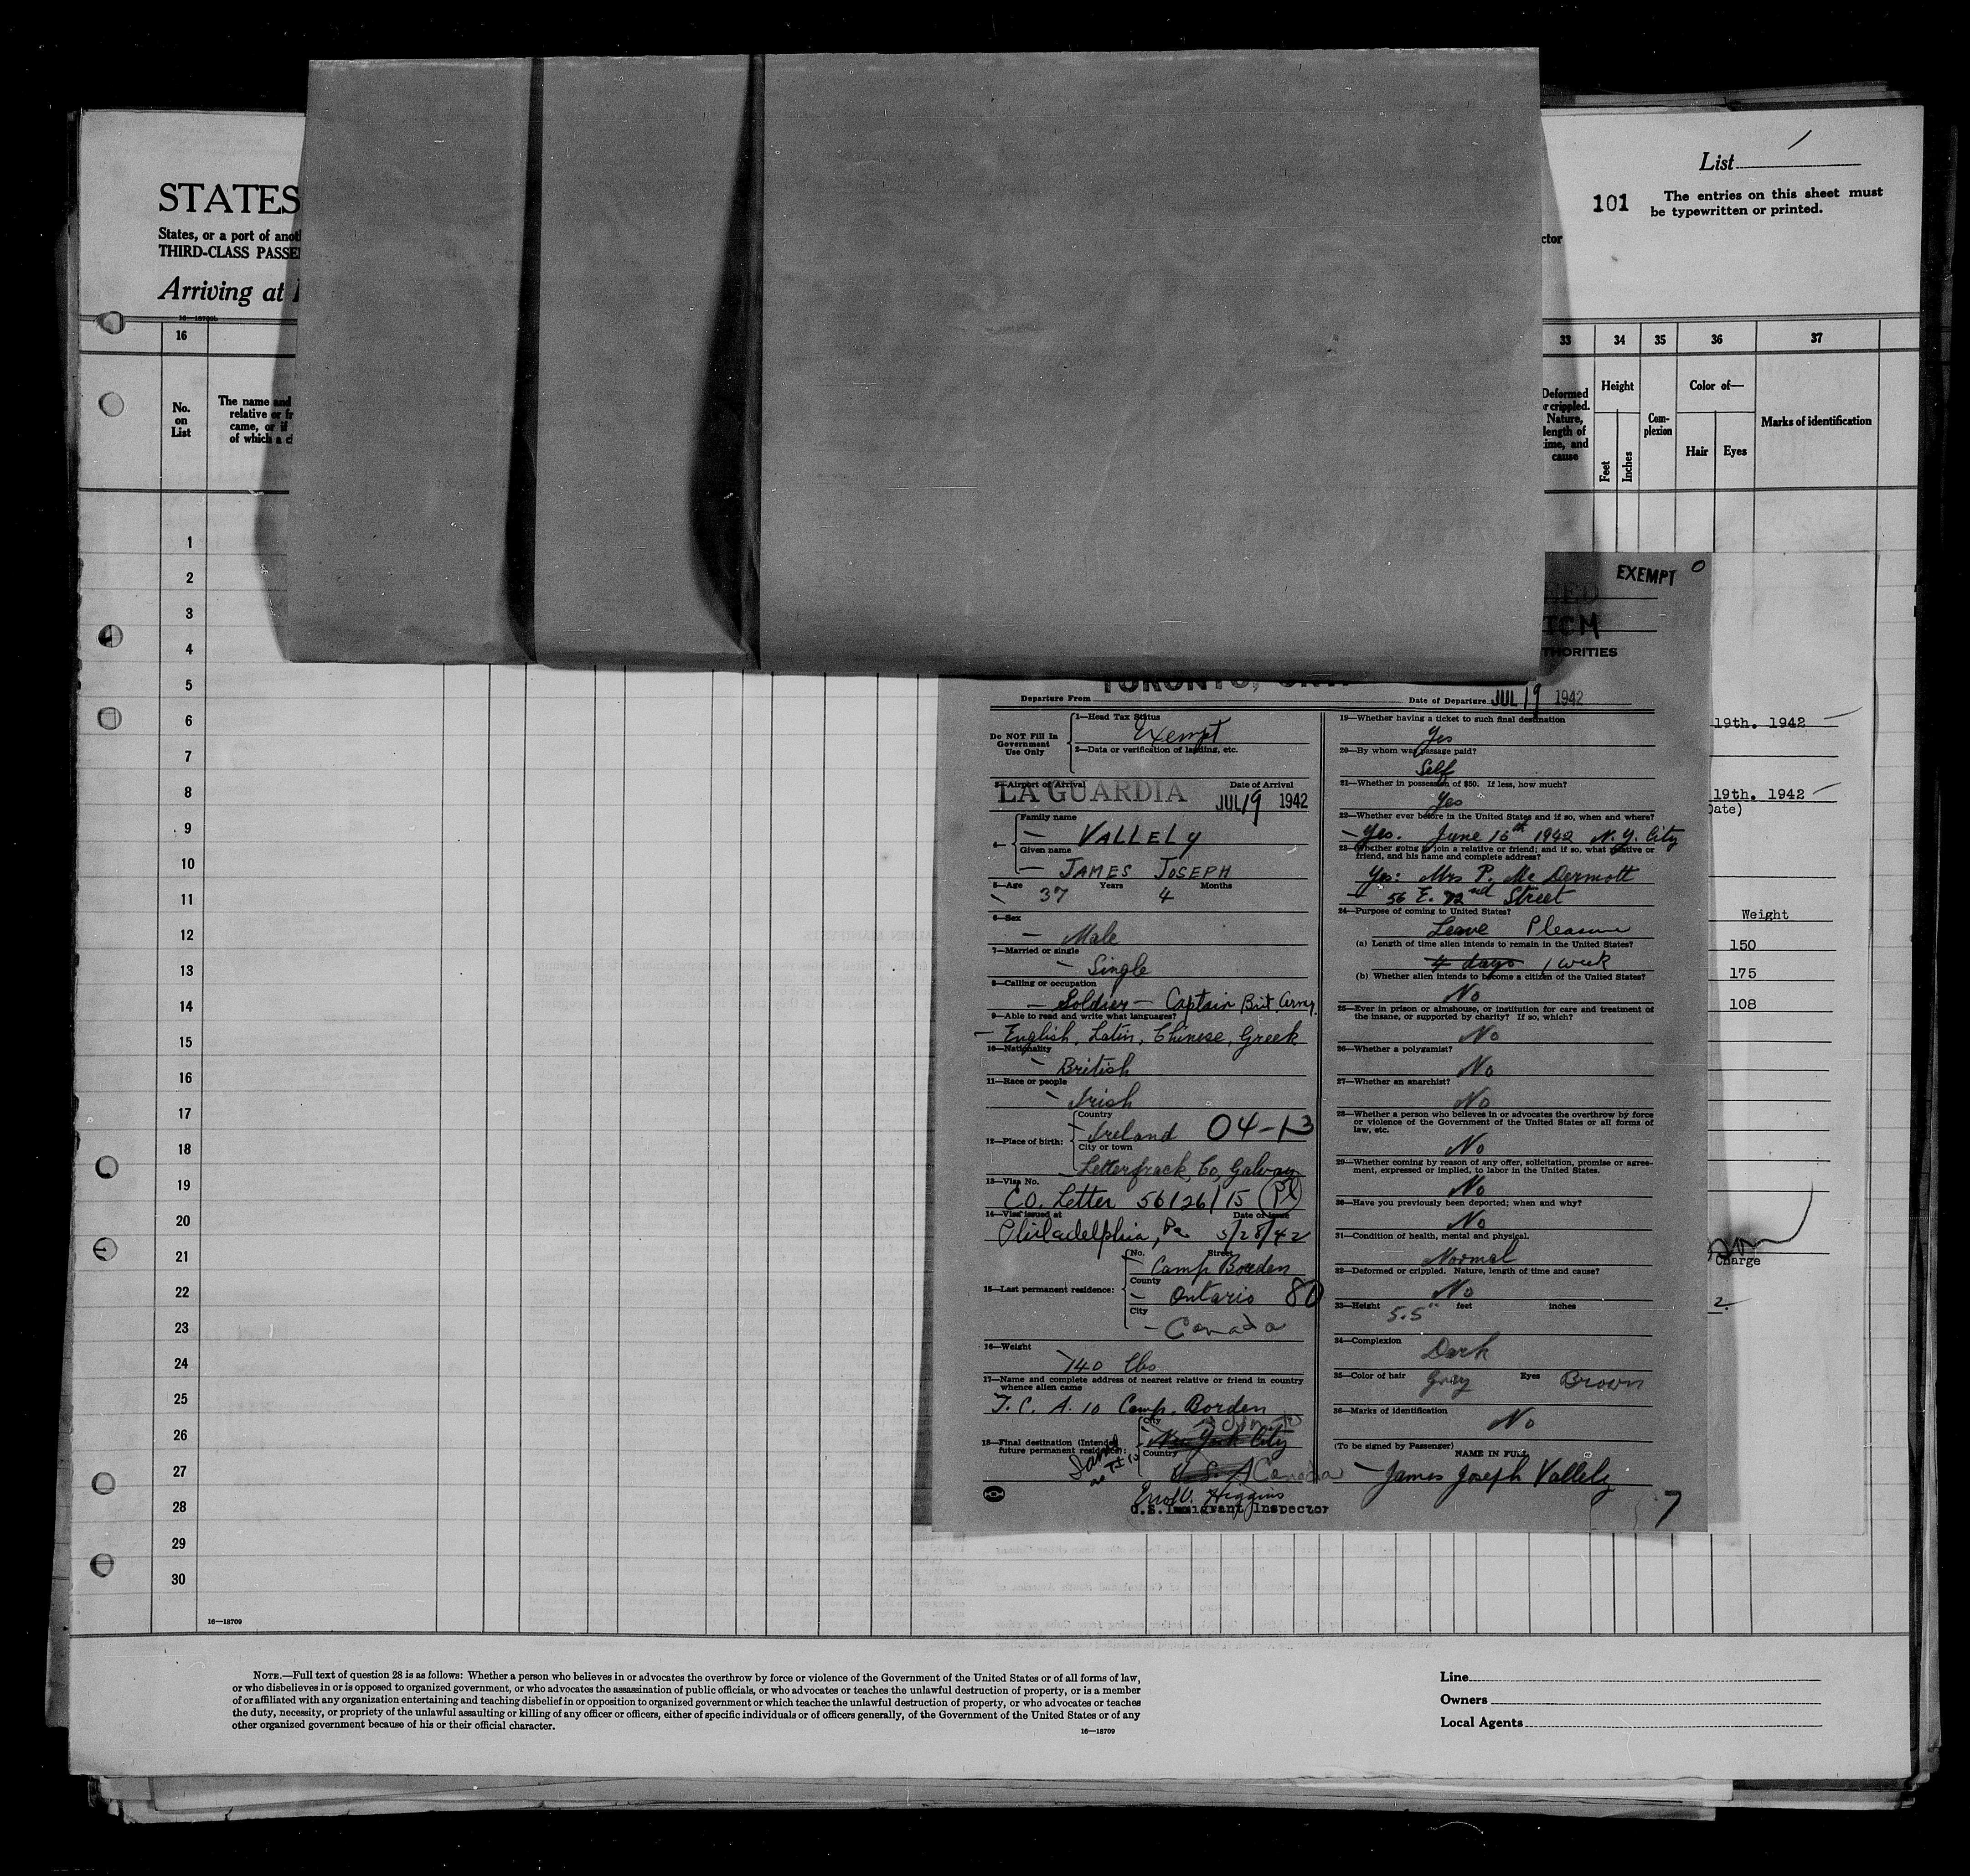 List /
101 The entries on this sheet must
be typewritten or printed.
STATES
States, or a port of anot
THIRD-CLASS PASSE
ctor
Arriving at
16—18709b
16
33 34 35 36 37
No.
on
List
The name and
relative or fr
came, or if
of which a ci
Deformed
or crippled.
Nature,
length of
time, and
cause
Height
Feet
Inches
Com-
plexion
Color of—
Hair
Eyes
Marks of identification
1
2
3
4
5
6
7
8
9
10
11
12
13
14
15
16
17
18
19
20
21
22
23
24
25
26
27
28
29
30
EXEMPT 0
THORITIES
TORONTO, ONT.
Departure From
Date of Departure JUL 19 1942
Do NOT Fill In
Government
Use Only
1—Head Tax Status
Exempt
2—Data or verification of landing, etc.
3—Airport of Arrival Date of Arrival
LA GUARDIA JUL 19 1942
4— Family name
VALLELY
Given name
JAMES JOSEPH
5—Age Years Months
37 4
6—Sex
Male
7—Married or single
Single
8—Calling or occupation
Soldier — Captain Brit. Army.
9—Able to read and write what languages?
English, Latin, Chinese, Greek
10—Nationality
British
11—Race or people
Irish
12—Place of birth:
Country
Ireland 04-13
City or town
Letterfrack, Co. Galway
13—Visa No.
CO. Letter 56126/15 (Pl)
14—Visa issued at Date of issue
Philadelphia, Pa 5/28/42
15—Last permanent residence:
No. Street
Camp Borden
County
Ontario 80
City
Canada
16—Weight
140 lbs
17—Name and complete address of nearest relative or friend in country
whence alien came
T. C. A. 10 Camp, Borden
18—Final destination (Intended
future permanent residence):
Same
as #15
City
New York City
Country
U.S.A Canada
Higgins
U.S. Immigrant Inspector
19—Whether having a ticket to such final destination
Yes
20—By whom was passage paid?
Self
21—Whether in possession of $50. If less, how much?
Yes
22—Whether ever before in the United States and if so, when and where?
Yes. June 15th 1942 N.Y. City
23—Whether going to join a relative or friend; and if so, what relative or
friend, and his name and complete address?
Yes: Mrs P. Mc Dermott
56 E. 72nd Street
24—Purpose of coming to United States?
Leave Pleasure
(a) Length of time alien intends to remain in the United States?
4 days 1 week
(b) Whether alien intends to become a citizen of the United States?
No
25—Ever in prison or almshouse, or institution for care and treatment of
the insane, or supported by charity? If so, which?
No
26—Whether a polygamist?
No
27—Whether an anarchist?
No
28—Whether a person who believes in or advocates the overthrow by force
or violence of the Government of the United States or all forms of
law, etc.
No
29—Whether coming by reason of any offer, solicitation, promise or agree-
ment, expressed or implied, to labor in the United States.
No
30—Have you previously been deported; when and why?
No
31—Condition of health, mental and physical.
Normal
32—Deformed or crippled. Nature, length of time and cause?
No
33—Height 5.5" feet inches
34—Complexion
Dark
35—Color of hair Gray Eyes Brown
36—Marks of identification
No
(To be signed by Passenger)
NAME IN FULL
James Joseph Vallely
7
19th. 1942
19th. 1942
Date)
Weight
150
175
108
Charge
2.
16—18709
NOTE.—Full text of question 28 is as follows: Whether a person who believes in or advocates the overthrow by force or violence of the Government of the United States or of all forms of law,
or who disbelieves in or is opposed to organized government, or who advocates the assassination of public officials, or who advocates or teaches the unlawful destruction of property, or is a member
of or affiliated with any organization entertaining and teaching disbelief in or opposition to organized government or which teaches the unlawful destruction of property, or who advocates or teaches
the duty, necessity, or propriety of the unlawful assaulting or killing of any officer or officers, either of specific individuals or of officers generally, of the Government of the United States or of any
other organized government because of his or their official character.
16—18709
Line
Owners
Local Agents